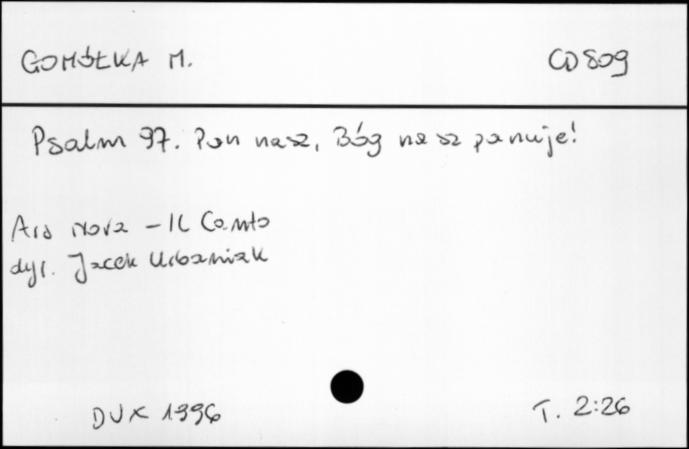 GOMÓŁKA M. CD 809
Psalm 97. Pan nasz, Bóg nasz panuje!
Ars Nova - Il Canto
dyr. Jacek Urbaniak
DUX 1996 T. 2:26